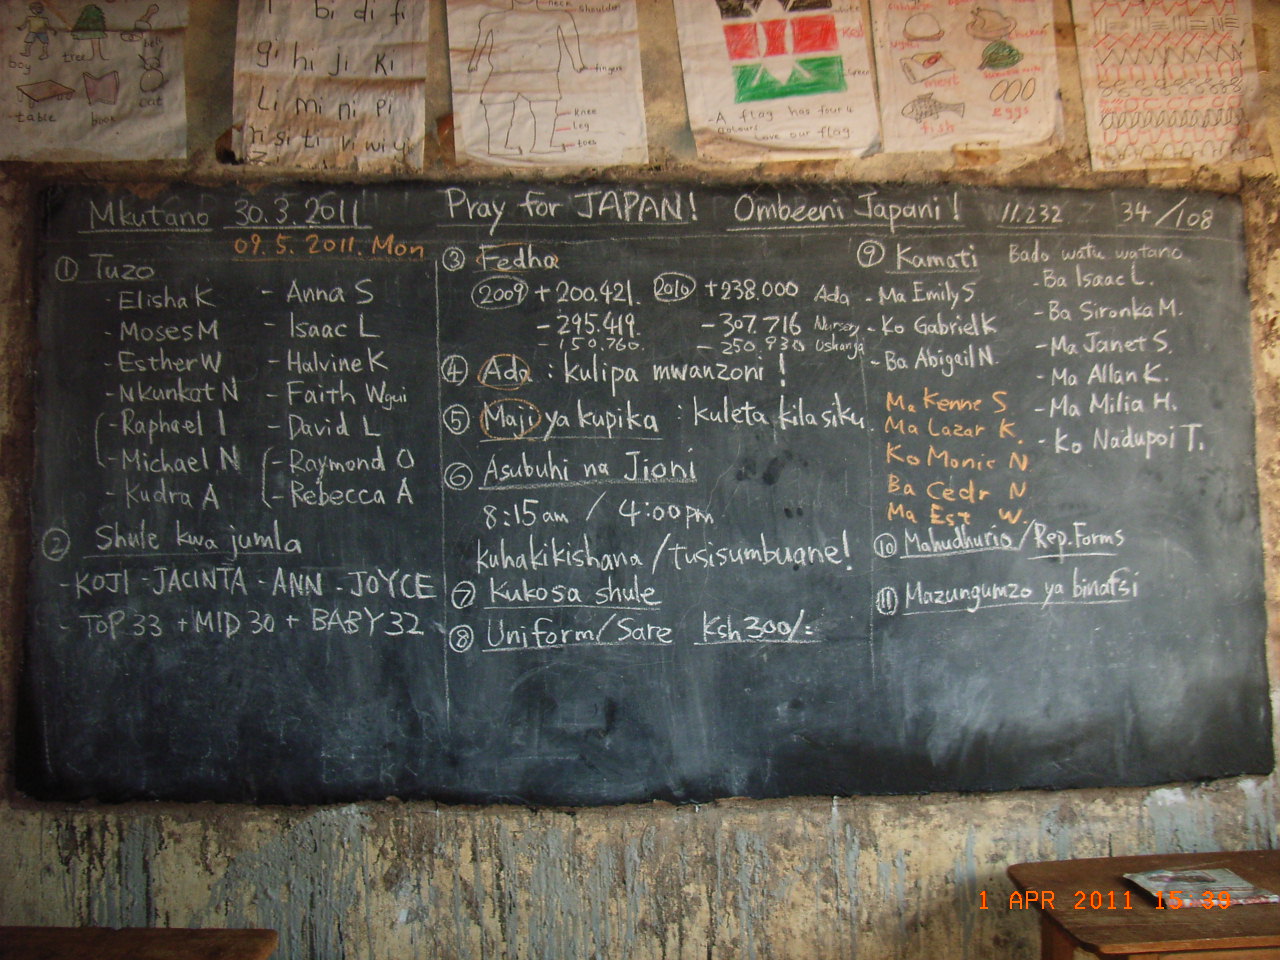 boy
tree
bell
table
book
cat
bi di fi
gi hi ji ki
Li mi ni pi
si ti vi wi yi
neck
shoulder
fingers
knee
leg
toes
white
Red
Green
-A flag has four 4
colours
Love our flag
ugali
chicken
meat
fish
eggs
Mkutano 30.3.2011 Pray for JAPAN! Ombeeni Japani! 11.232 34/108
09.5.2011. Mon
① Tuzo
- Elisha K
- Moses M
- Esther W
- Nkunkat N
- Raphael I
- Michael N
- Kudra A
- Anna S
- Isaac L
- Halvine K
- Faith Wgui
- David L
- Raymond O
- Rebecca A
② Shule kwa jumla
- KOJI - JACINTA - ANN - JOYCE
- TOP 33 + MID 30 + BABY 32
③ Fedha
2009 +200.421. 2010 +238.000 Ada
- 295.419. - 307.716 Nursery
- 150.760. - 250.930 Ushanga
④ Ada : kulipa mwanzoni!
⑤ Maji ya kupika : kuleta kila siku.
⑥ Asubuhi na Jioni
8:15am / 4:00pm
kuhakikishana/tusisumbuane!
⑦ Kukosa shule
⑧ Uniform/Sare Ksh 300/=
⑨ Kamati Bado watu watano
- Ma Emily S
- Ko Gabriel K
- Ba Abigail N.
Ma Kenne S
Ma Lazar K.
Ko Monic N
Ba Cedr N
Ma Est W
- Ba Isaac L.
- Ba Sironka M.
- Ma Janet S.
- Ma Allan K.
- Ma Milia H.
- Ko Nadupoi T.
⑩ Mahudhurio/Rep.Forms
⑪ Mazungumzo ya binafsi
1 APR 2011 15:39